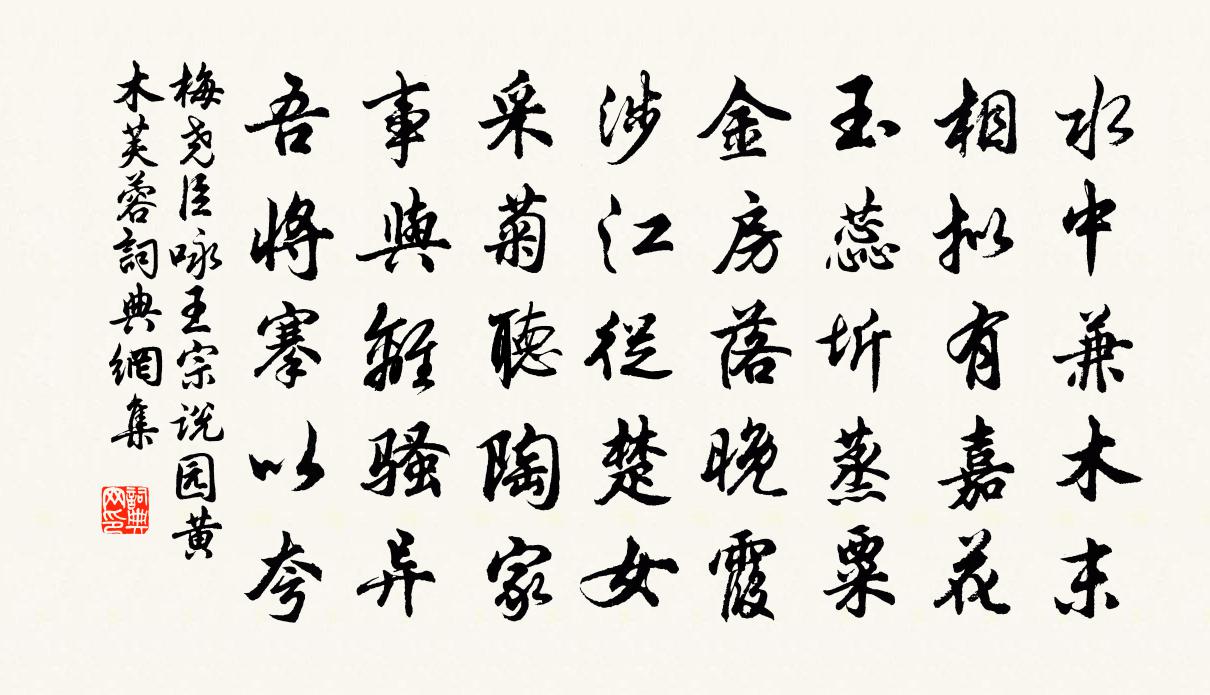 水中兼木末
相拟有嘉花
玉蕊坼蒸粟
金房落晚霞
涉江從楚女
采菊聽陶家
事與離騷异
吾將搴以夸
梅尧臣咏王宗说园黄
木芙蓉詞典網集
詞典
网印